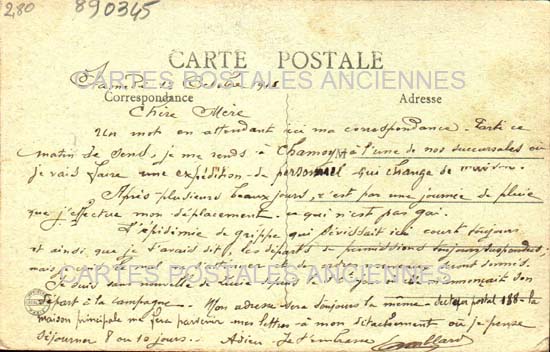 280
890345
CARTE POSTALE
Samedi 12 Octobre 1918
CARTES POSTALES ANCIENNES
Correspondance
Adresse
Chère Mère
Un mot en attendant ici ma correspondance. Parti ce
matin de Sens, je me rends à Chamoy à l'une de nos succursales où
je vais faire une expédition de personnel qui change de
Après plusieurs beaux jours, c'est par une journée de pluie
que j'effectue mon déplacement. ce qui n'est pas gai.
L'épidémie de grippe qui sévissait ici court toujours
et ainsi, que je t'avais dit, les départs de permissions toujours suspendus,
mais
CARTES POSTALES ANCIENNES
Je suis sans nouvelle de
départ à la campagne. Mon adresse sera toujours la même - secteur postal 188 - la
maison principale me fera parvenir mes lettres à mon détachement où je pense
séjourner 8 ou 10 jours. Adieu. Je t'embrasse